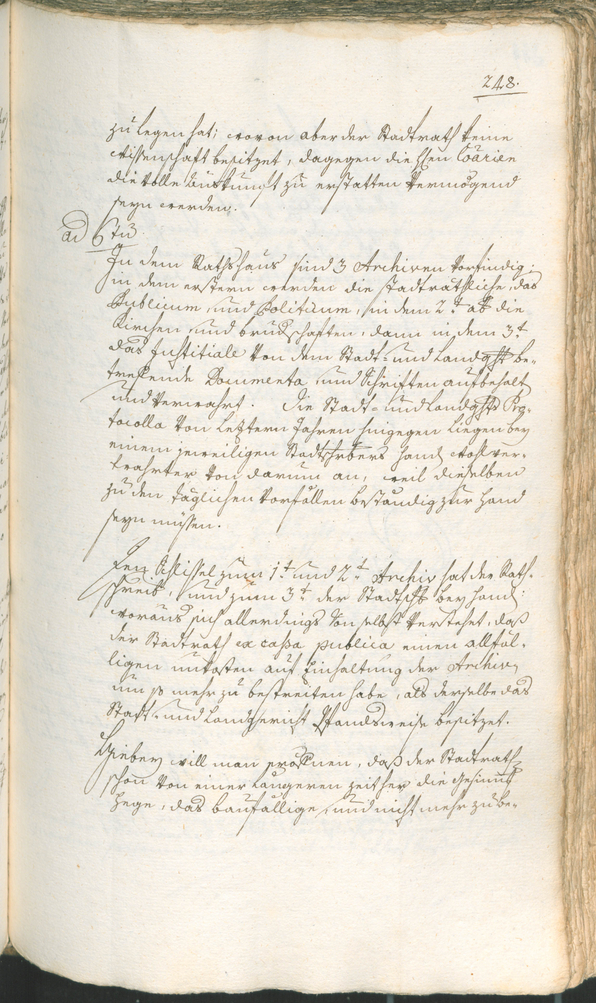 248.
zu legen hat; wovon aber der Stadtrath keine
wissenschaft besitzet, dagegen die HEen Coärien
die volle Auskunft zu erstatten vermögend
seyn werden.
ad 6tu
In dem Rathshaus sind 3 Archiven vorfindig;
in dem erstern werden die stadträthliche, das
Publicum, und Politicum, in dem 2t. ab die
Kirchen und bruderschaften, dann in dem 3t
das Justitiale von dem Stadt- und Landght be-
treffende Documenta, und Schriften aufbehalt
und verwahrt. Die Stadt- und Landghts Pro-
tocolla von letztern Jahren hingegen liegen bey
einem jeweiligen Stadtschrbers hand wohl ver-
wahrter von darum an, weil dieselben
zu den täglichen vorfällen beständig zur hand
seyn müssen.
Den Schlissel zum 1t und 2t Archiv hat der Rath-
schreib, und zum 3t der Stadtschr bey hand;
woraus sich allerdings von selbst verstehet, daß
der Stadtrath ex cassa publica einen allfäl-
ligen unkosten auf Einhaltung der Archiven
um so mehr zu bestreiten habe, als derselbe das
Statt- und Landgericht Pfandsweise besitzet.
Hiebey will man eröffnen, daß der Stadtrath
schon von einer längeren zeit her die Gesinnung
hege, das baufällige, und nicht mehr zu be-